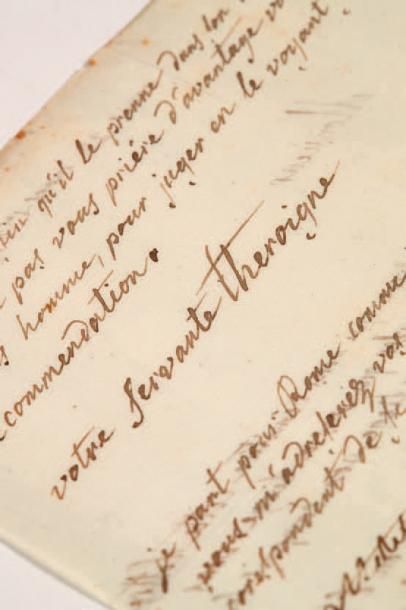 qu'il le prenne dans son
pas vous prière d'avantage
homme, pour juger en le voyant
recommendation.
votre servante theroigne
je part pour Rome comme
vous m'adreserez vos
correspondent de